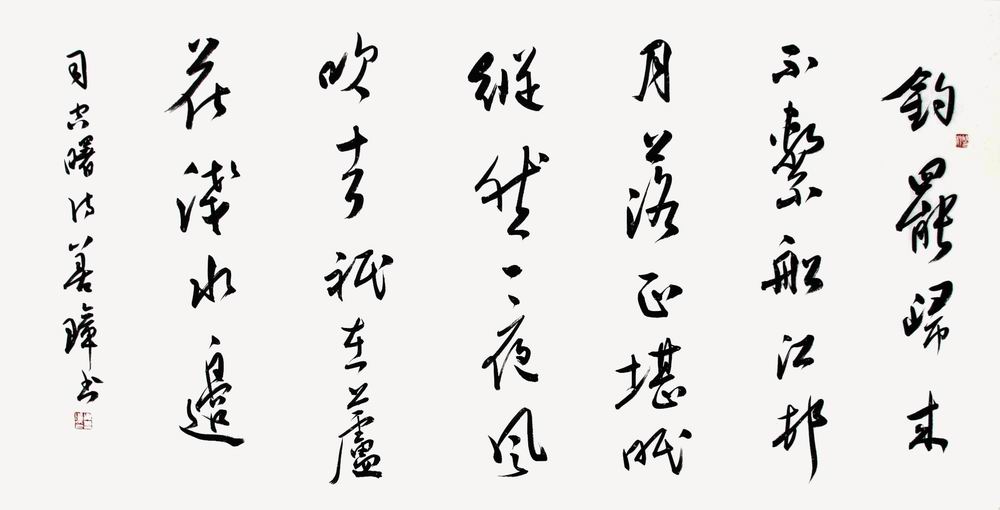 釣罷歸來
不繫船江邨
月落正堪眠
縱然一夜風
吹去祇在蘆
花淺水邊
司空曙詩善璋書